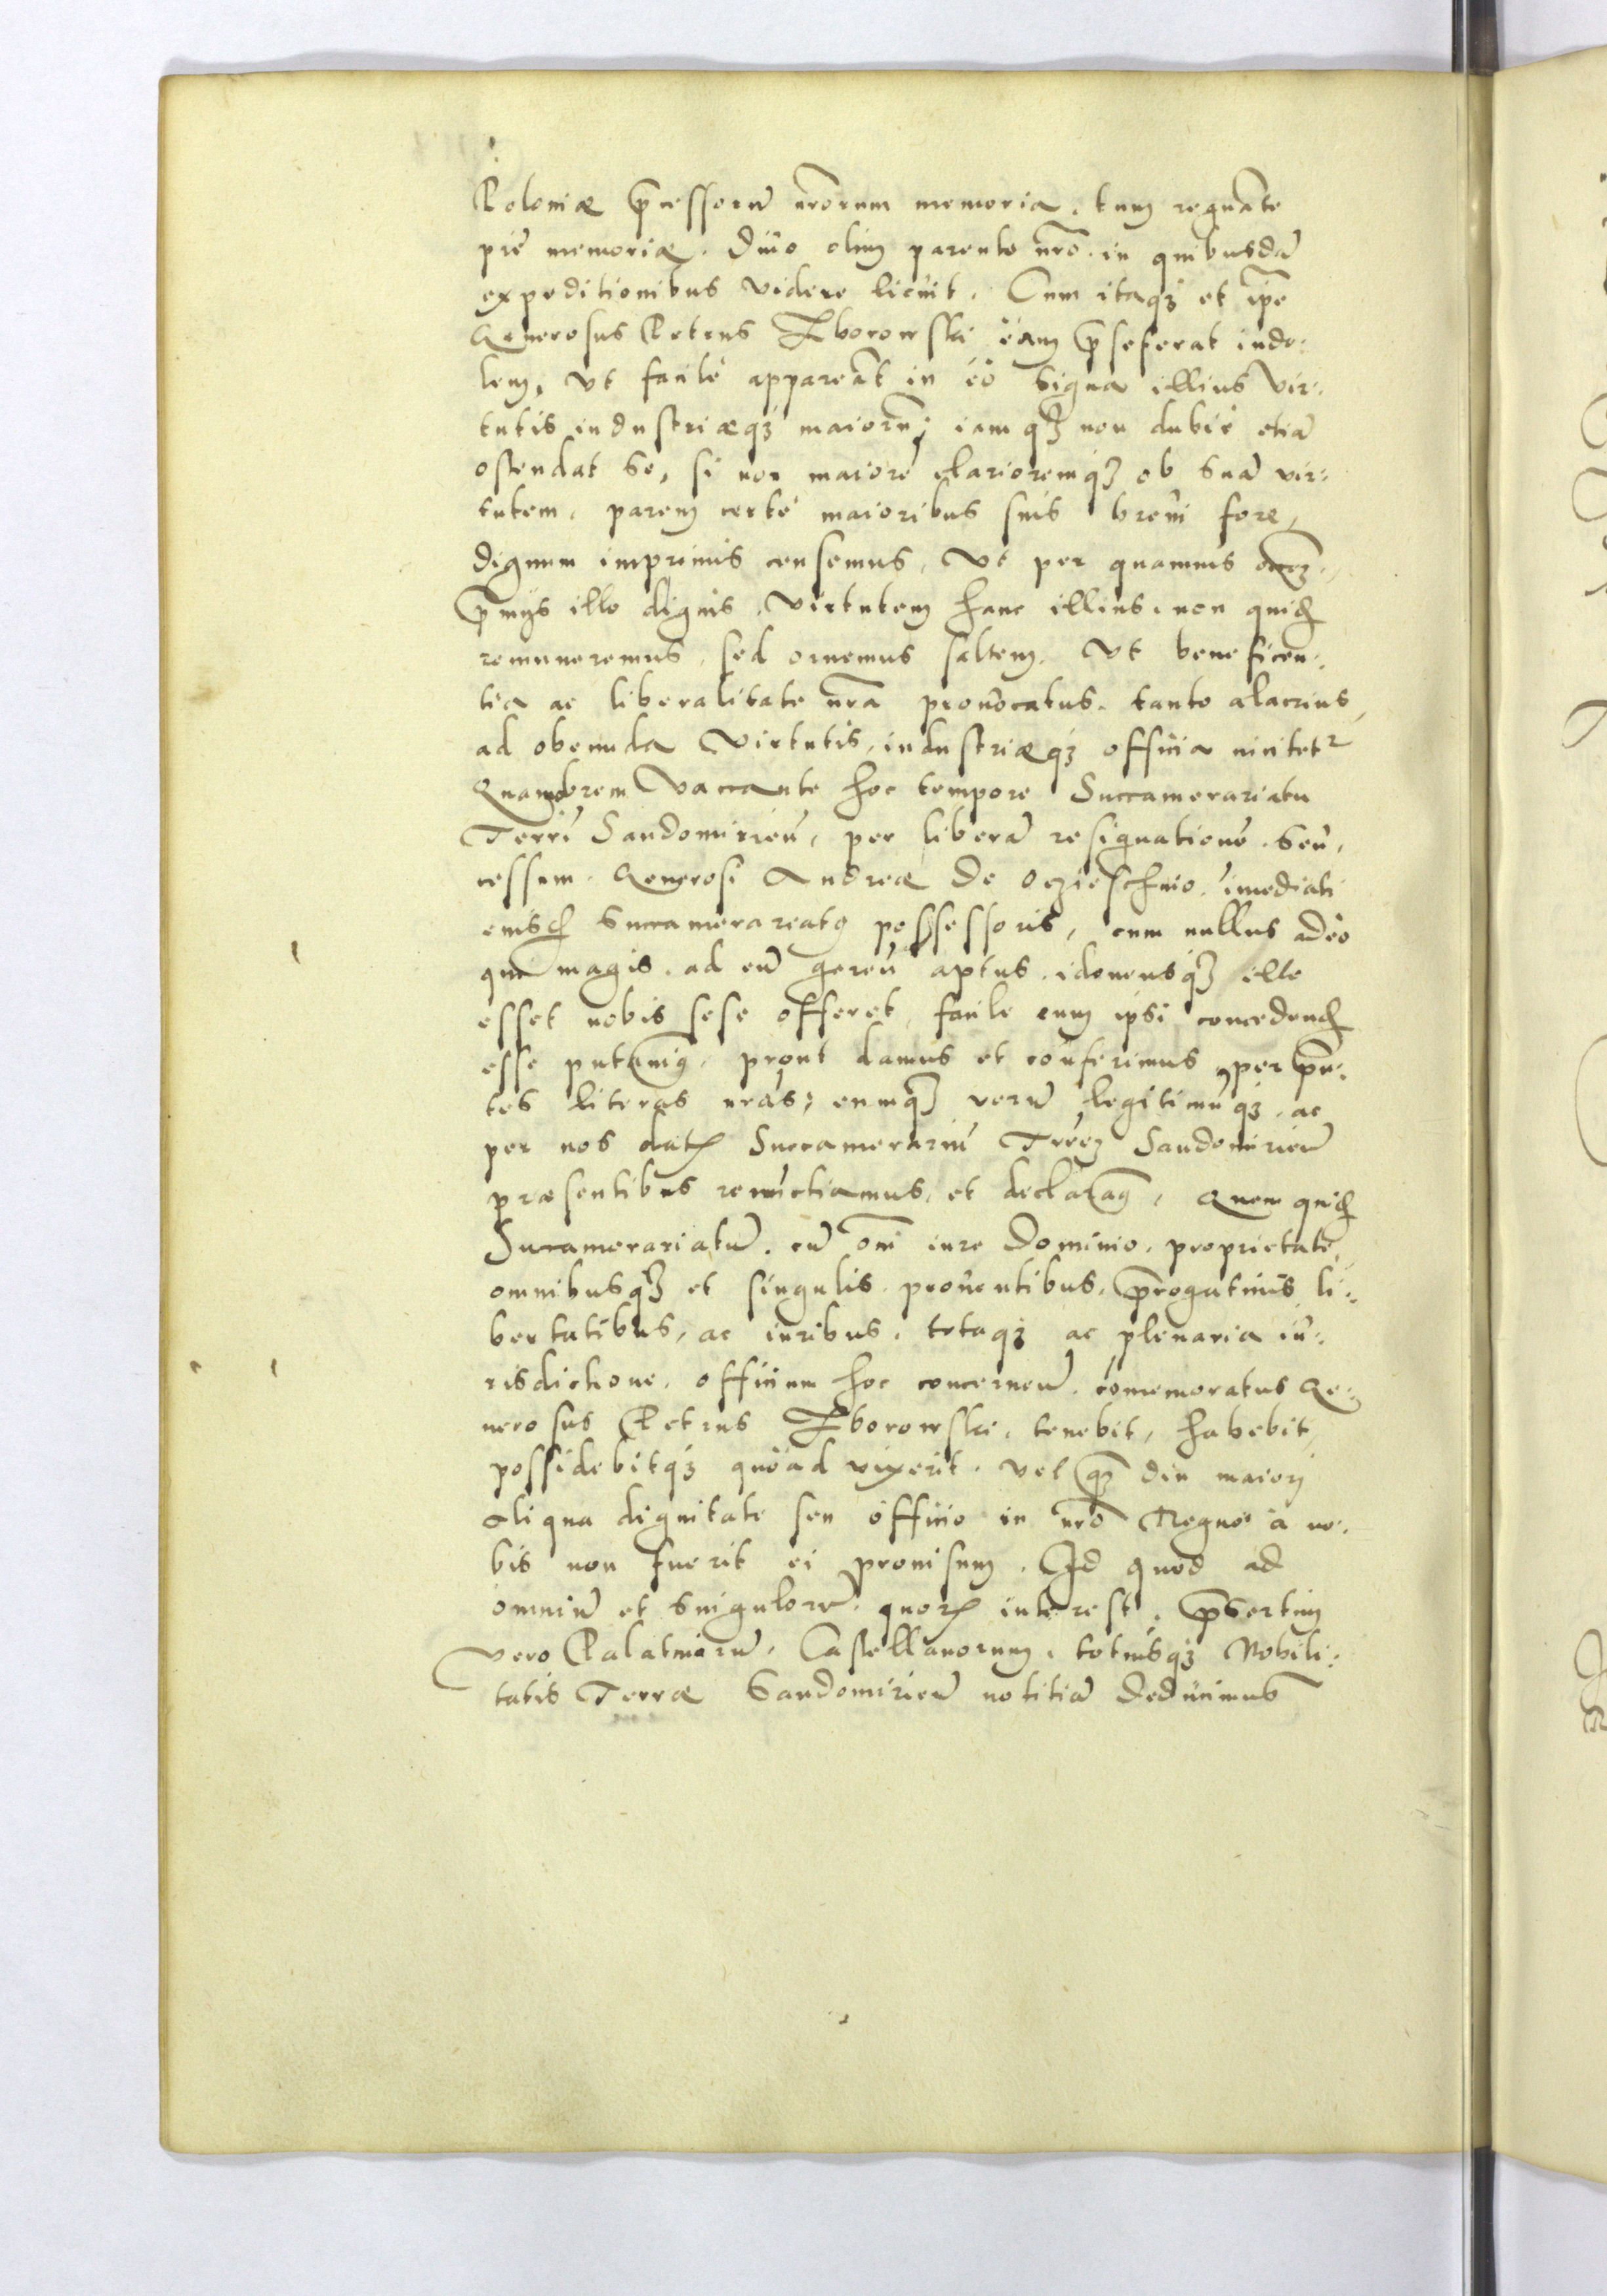 Poloniæ p̄cessorū nr̄orum memoria, tum regnāte
piē memoriæ. Diuo olim parente nr̄o. in quibusdā
expeditionibus videre licuit. Cum itaq3 et ip̄e
Generosus Petrus Zborowski eam p̄ seferat indo:
lem, vt facilè appareāt in eo signa illius vir:
tutis industriæq3 maiorū, iam q3 non dubiè etiā
ostendat se, si non maiorē clarioremq3 ob suā vir:
tutem, parem certè maioribus suis breui fore,
dignum imprimis censemus, vt per quamuis occ̄em.
p̄mijs illo dignis, virtutem hanc illius, non quid
remuneremus, sed ornemus saltem. Vt beneficen:
tia ac liberalitate nr̄a prouocatus, tanto alacrius,
ad obeunda virtutis, industriæq3 officia incitetr
Quamobrem vaccante hoc tempore Succamerariatu
Terrē Sandomirien̄, per liberā resignationē. seu,
cessum. Generosi Andreæ De oczieschnio, imediati
eiusd Succamerariatꝯ possessoris, cum nullus adeo
qui magis. ad eū geren̄ aptus, idoneusq3 ille
esset nobis sese offeret, facile eum ipsi concedend
esse putamꝯ, prout damus et conferimus, per p̄n:
tes literas nr̄as; eumq3 verū legitimūq3, ac
per nos datꝝ Succamerariū Terræ Sandomirien̄
præsentibus renuctiamus, et declaramꝯ, Quem quid
Succamerariatū. cū om̄i iure Dominio, proprietate,
omnibusq3 et singulis prouentibus, p̄rogatiuis li:
bertatibus, ac iuribus, totaq3 ac plenaria iu:
risdictione, officium hoc concernen̄. comemoratus Ge:
nerosus Petrus Zborowski, tenebit, habebit,
possidebitq3 quoad vixerit, vel q̄ diu maiori
aliqua dignitate seu officio in nr̄o Regno à no:
bis non fuerit ei prouisum. Id quod ad
omniū et singulorū. quorꝝ interest. p̄sertim
vero Palatinorū, Castellanorum, totiusq3 Nobili:
tatis Terræ Sandomirien̄ notitiā deducimus